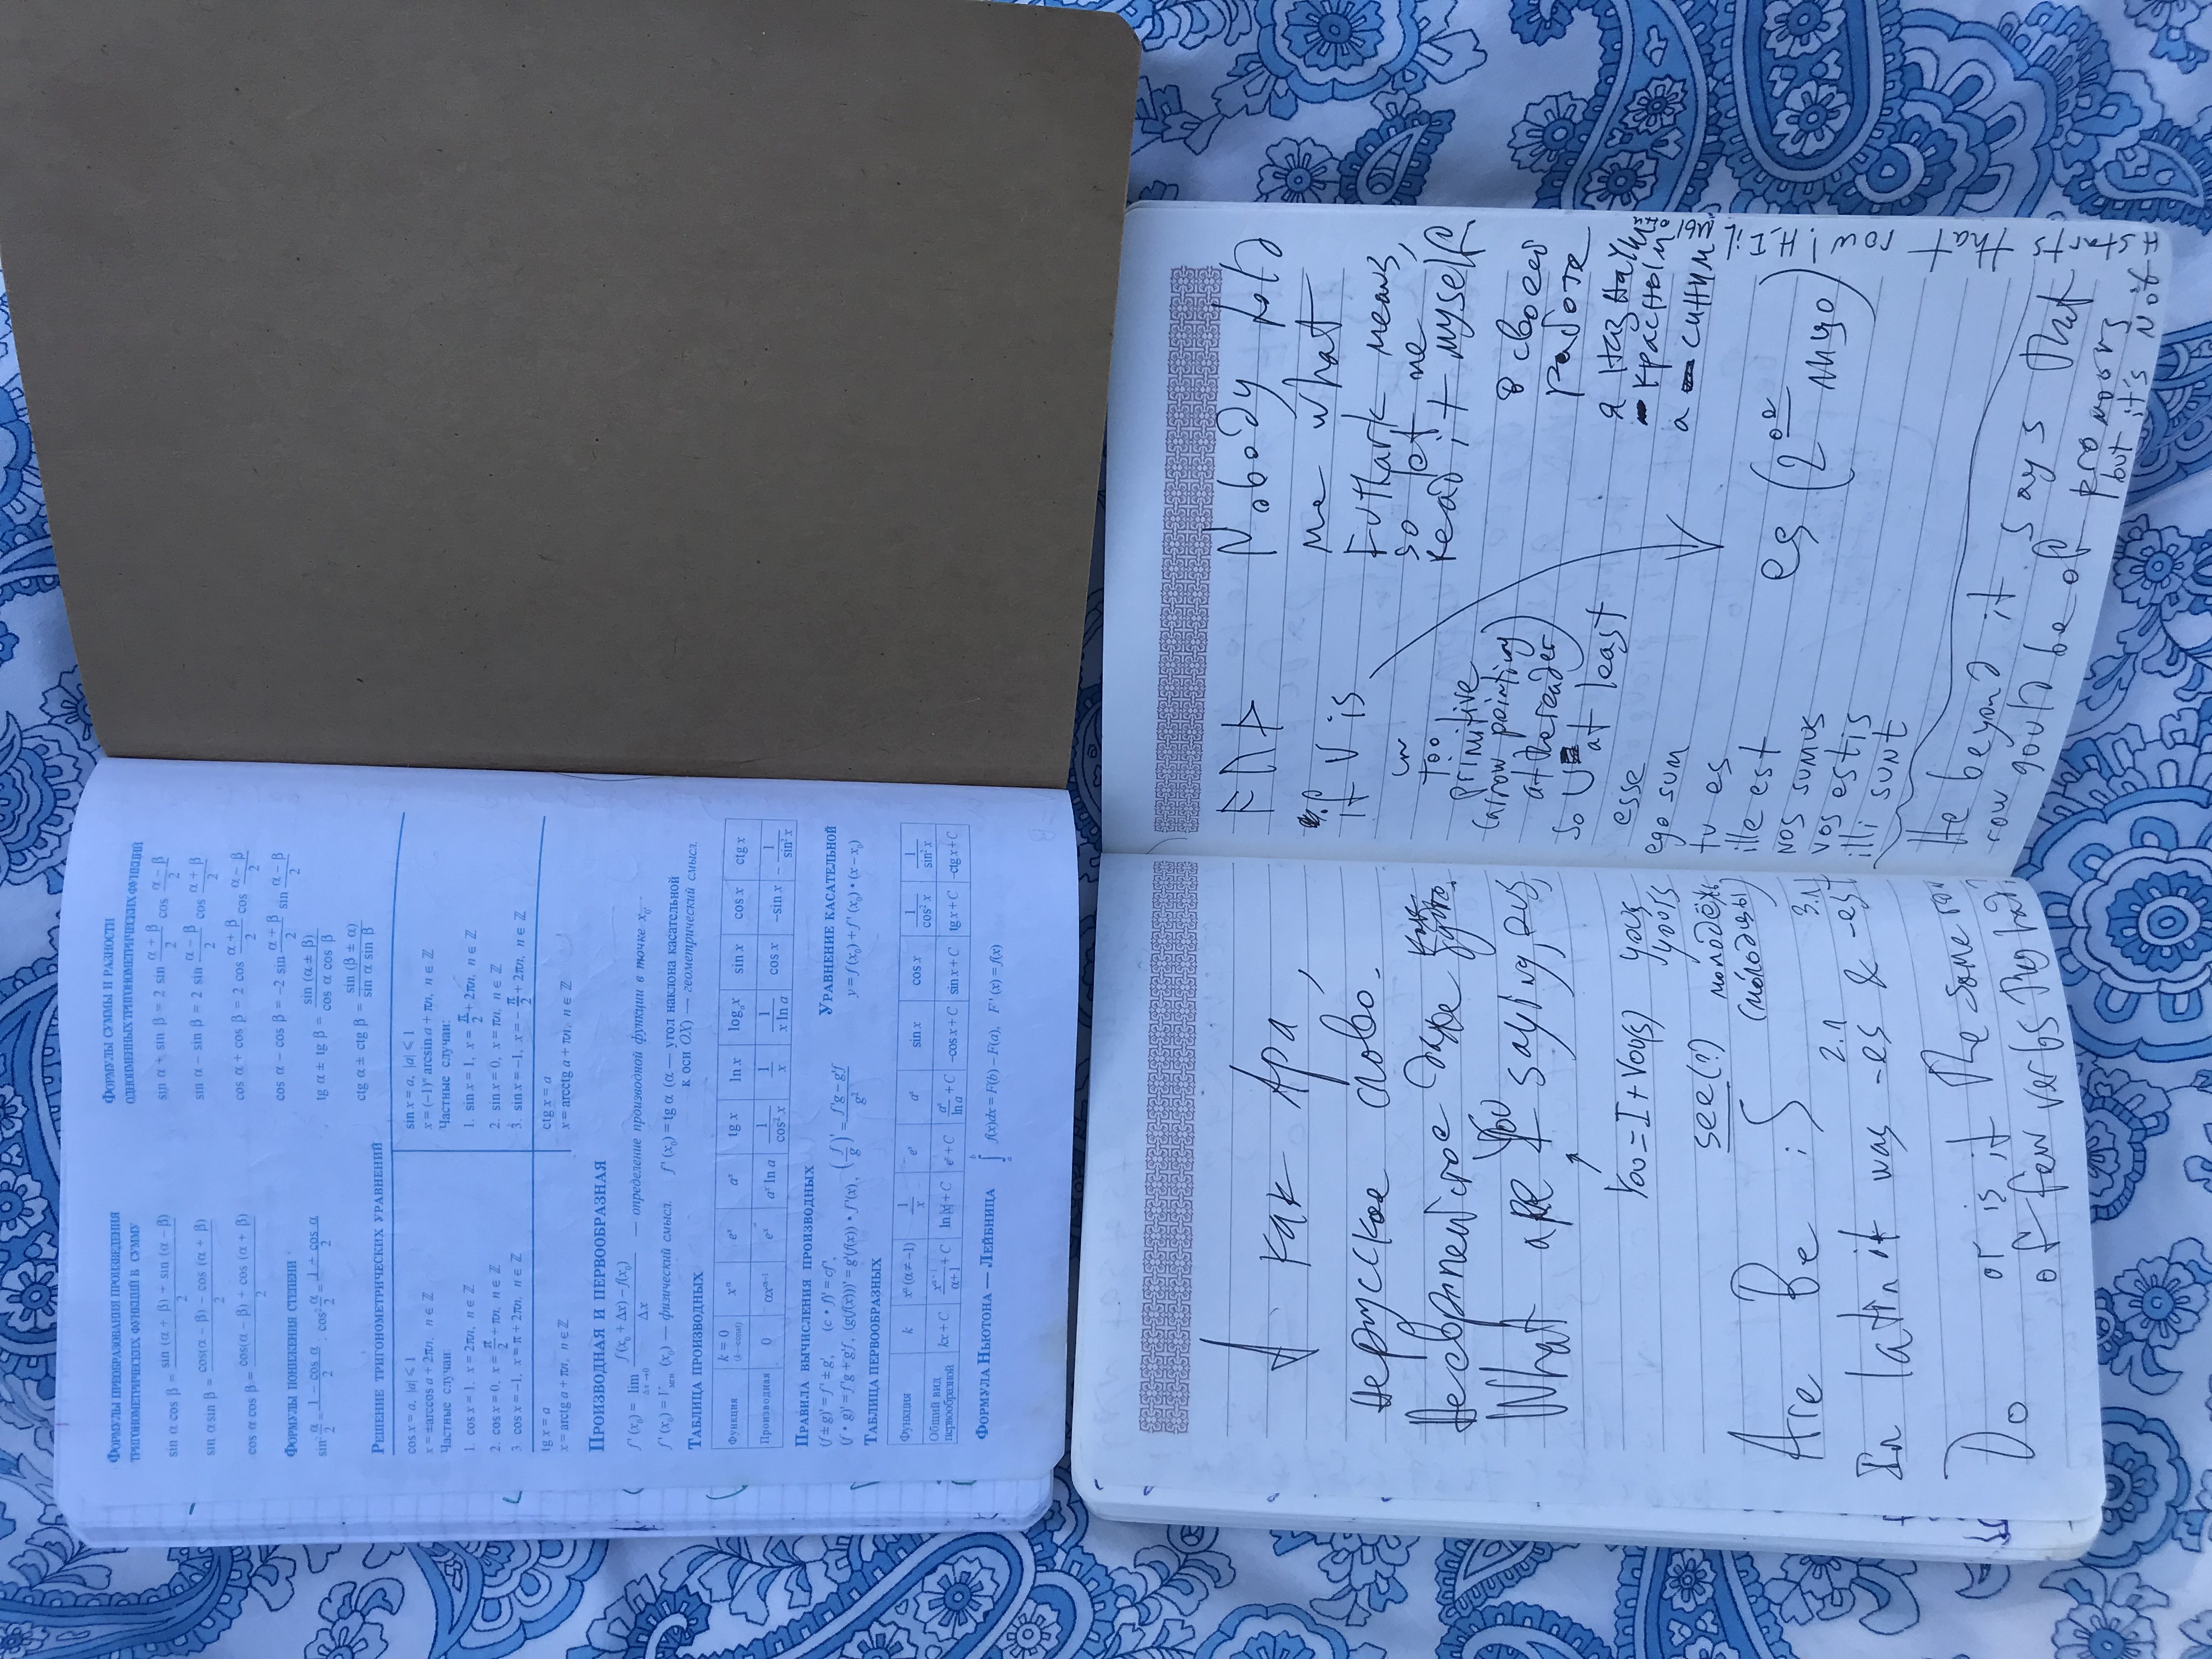 ФОРМУЛЫ ПРЕОБРАЗОВАНИЯ ПРОИЗВЕДЕНИЯ
ТРИГОНОМЕТРИЧЕСКИХ ФУНКЦИЙ В СУММУ
sin α cos β = (sin (α + β) + sin (α − β))/2
sin α sin β = (cos(α − β) − cos (α + β))/2
cos α cos β = (cos(α − β) + cos (α + β))/2
ФОРМУЛЫ ПОНИЖЕНИЯ СТЕПЕНИ
sin² α/2 = (1 − cos α)/2 , cos² α/2 = (1 + cos α)/2
ФОРМУЛЫ СУММЫ И РАЗНОСТИ
ОДНОИМЕННЫХ ТРИГОНОМЕТРИЧЕСКИХ ФУНКЦИЙ
sin α + sin β = 2 sin (α + β)/2 cos (α − β)/2
sin α − sin β = 2 sin (α − β)/2 cos (α + β)/2
cos α + cos β = 2 cos (α + β)/2 cos (α − β)/2
cos α − cos β = −2 sin (α + β)/2 sin (α − β)/2
tg α ± tg β = sin (α ± β)/(cos α cos β)
ctg α ± ctg β = sin (β ± α)/(sin α sin β)
РЕШЕНИЕ ТРИГОНОМЕТРИЧЕСКИХ УРАВНЕНИЙ
cos x = a, |a| ⩽ 1
x = ±arccos a + 2πn, n ∈ ℤ
Частные случаи:
1. cos x = 1, x = 2πn, n ∈ ℤ
2. cos x = 0, x = π/2 + πn, n ∈ ℤ
3. cos x = −1, x = π + 2πn, n ∈ ℤ
sin x = a, |a| ⩽ 1
x = (−1)ⁿ arcsin a + πn, n ∈ ℤ
Частные случаи:
1. sin x = 1, x = π/2 + 2πn, n ∈ ℤ
2. sin x = 0, x = πn, n ∈ ℤ
3. sin x = −1, x = − π/2 + 2πn, n ∈ ℤ
tg x = a
x = arctg a + πn, n ∈ ℤ
ctg x = a
x = arcctg a + πn, n ∈ ℤ
ПРОИЗВОДНАЯ И ПЕРВООБРАЗНАЯ
f′ (x₀) = lim Δx→0 (f(x₀ + Δx) − f(x₀))/Δx — определение производной функции в точке x₀.
f′ (x₀) = Vмгн (x₀) — физический смысл. f′ (x₀) = tg α (α — угол наклона касательной
к оси OX) — геометрический смысл.
ТАБЛИЦА ПРОИЗВОДНЫХ
Функция k = 0 (k—const) xᵅ eˣ aˣ tg x ln x logₐx sin x cos x ctg x
Производная 0 αxᵅ⁻¹ eˣ aˣ ln a 1/cos² x 1/x 1/(x ln a) cos x −sin x −1/sin² x
ПРАВИЛА ВЫЧИСЛЕНИЯ ПРОИЗВОДНЫХ
(f ± g)′ = f′ ± g′, (c • f)′ = cf′,
(f • g)′ = f′g + g′f, (g(f(x)))′ = g′(f(x)) • f′(x), (f/g)′ = (f′g − g′f)/g²
УРАВНЕНИЕ КАСАТЕЛЬНОЙ
y = f(x₀) + f′ (x₀) • (x − x₀)
ТАБЛИЦА ПЕРВООБРАЗНЫХ
Функция k xᵅ (α ≠ −1) 1/x eˣ aˣ sin x cos x 1/cos² x 1/sin² x
Общий вид первообразной kx + C xᵅ⁺¹/(α+1) + C ln|x| + C eˣ + C aˣ/ln a + C −cos x + C sin x + C tg x + C −ctg x + C
ФОРМУЛА НЬЮТОНА — ЛЕЙБНИЦА ∫ f(x)dx = F(b) − F(a), F′ (x) = f(x)
А как Ара,
нерусское слово.
Неевропейское даже как
будто.
What are you saying,
You = I + Vou(s) yous
yoors
see (?) молодёжь
(мо́лодцы)
Are Be is
2.л 3.л
In latin it was -es & -est
Do or is it the same row
of few verbs they had?
ᚨᚢᚦ
if V is
in
too
primitive
(arrow pointing
at the reader)
so U at least
esse
ego sum
tu es
ille est
nos sumus
vos estis
illi sunt
Nobody told
me what
Futhark means,
so let me
read it myself
в своей
работе
я назначу
красным
а синим
es (2ое лицо)
He beyond it says that
row would be of pronoors
but it's not
Hstarts that row! H.I.